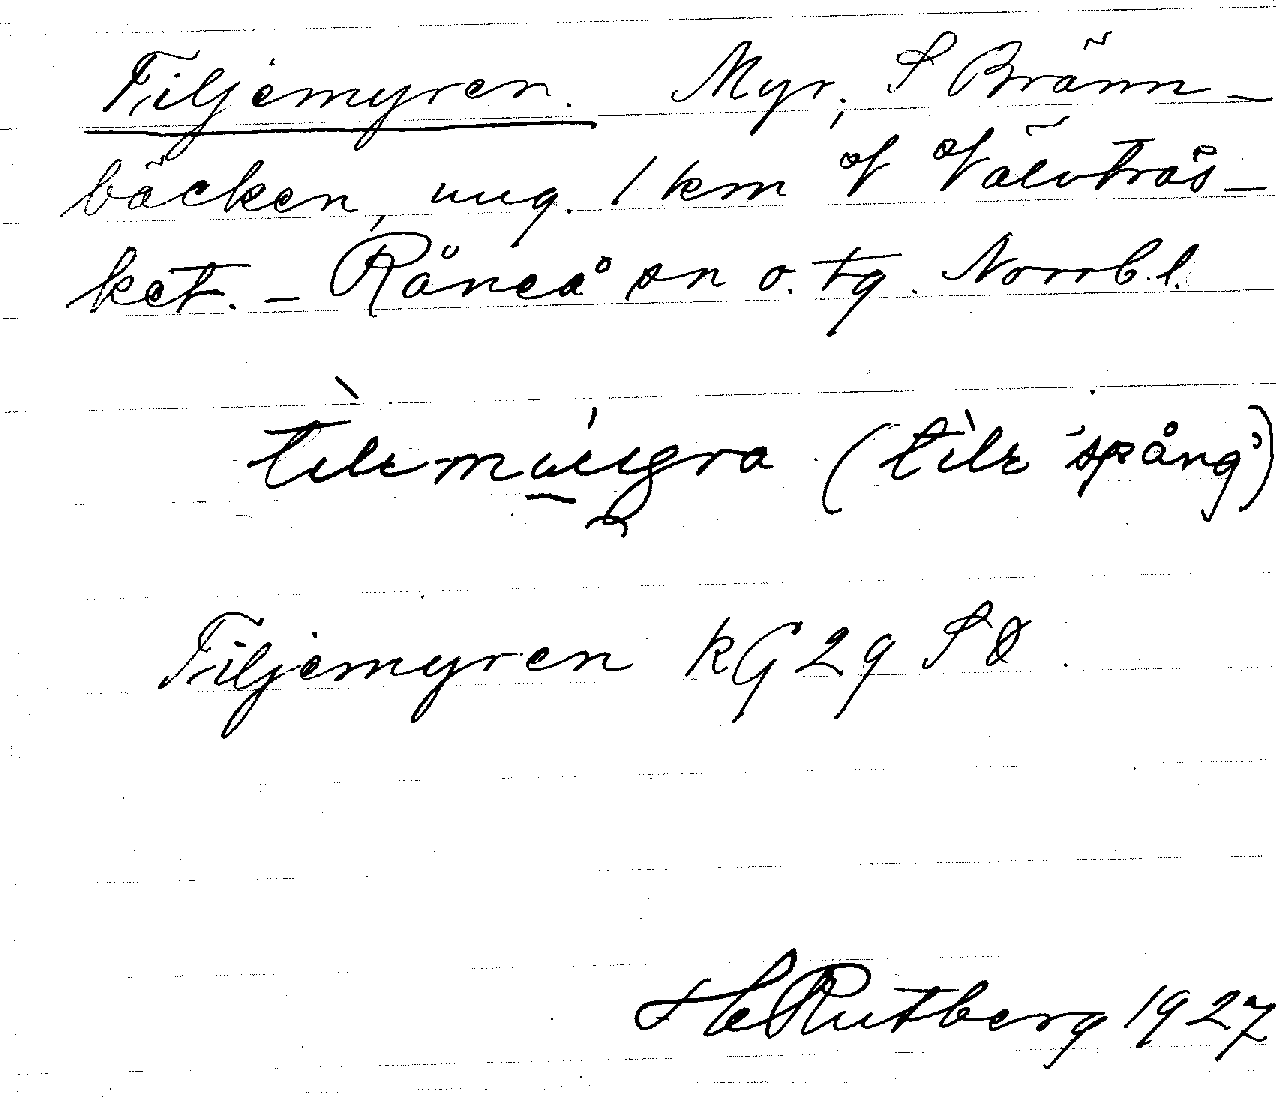 Tiljemyren. Myr, S Bränn-
bäcken, ung. 1 km V Välvträs-
ket. - Råneå sn o. tg. Norrb. l.
(tìlr 'spång')
Tiljemyren KG 29 SO
H Rutberg 1927